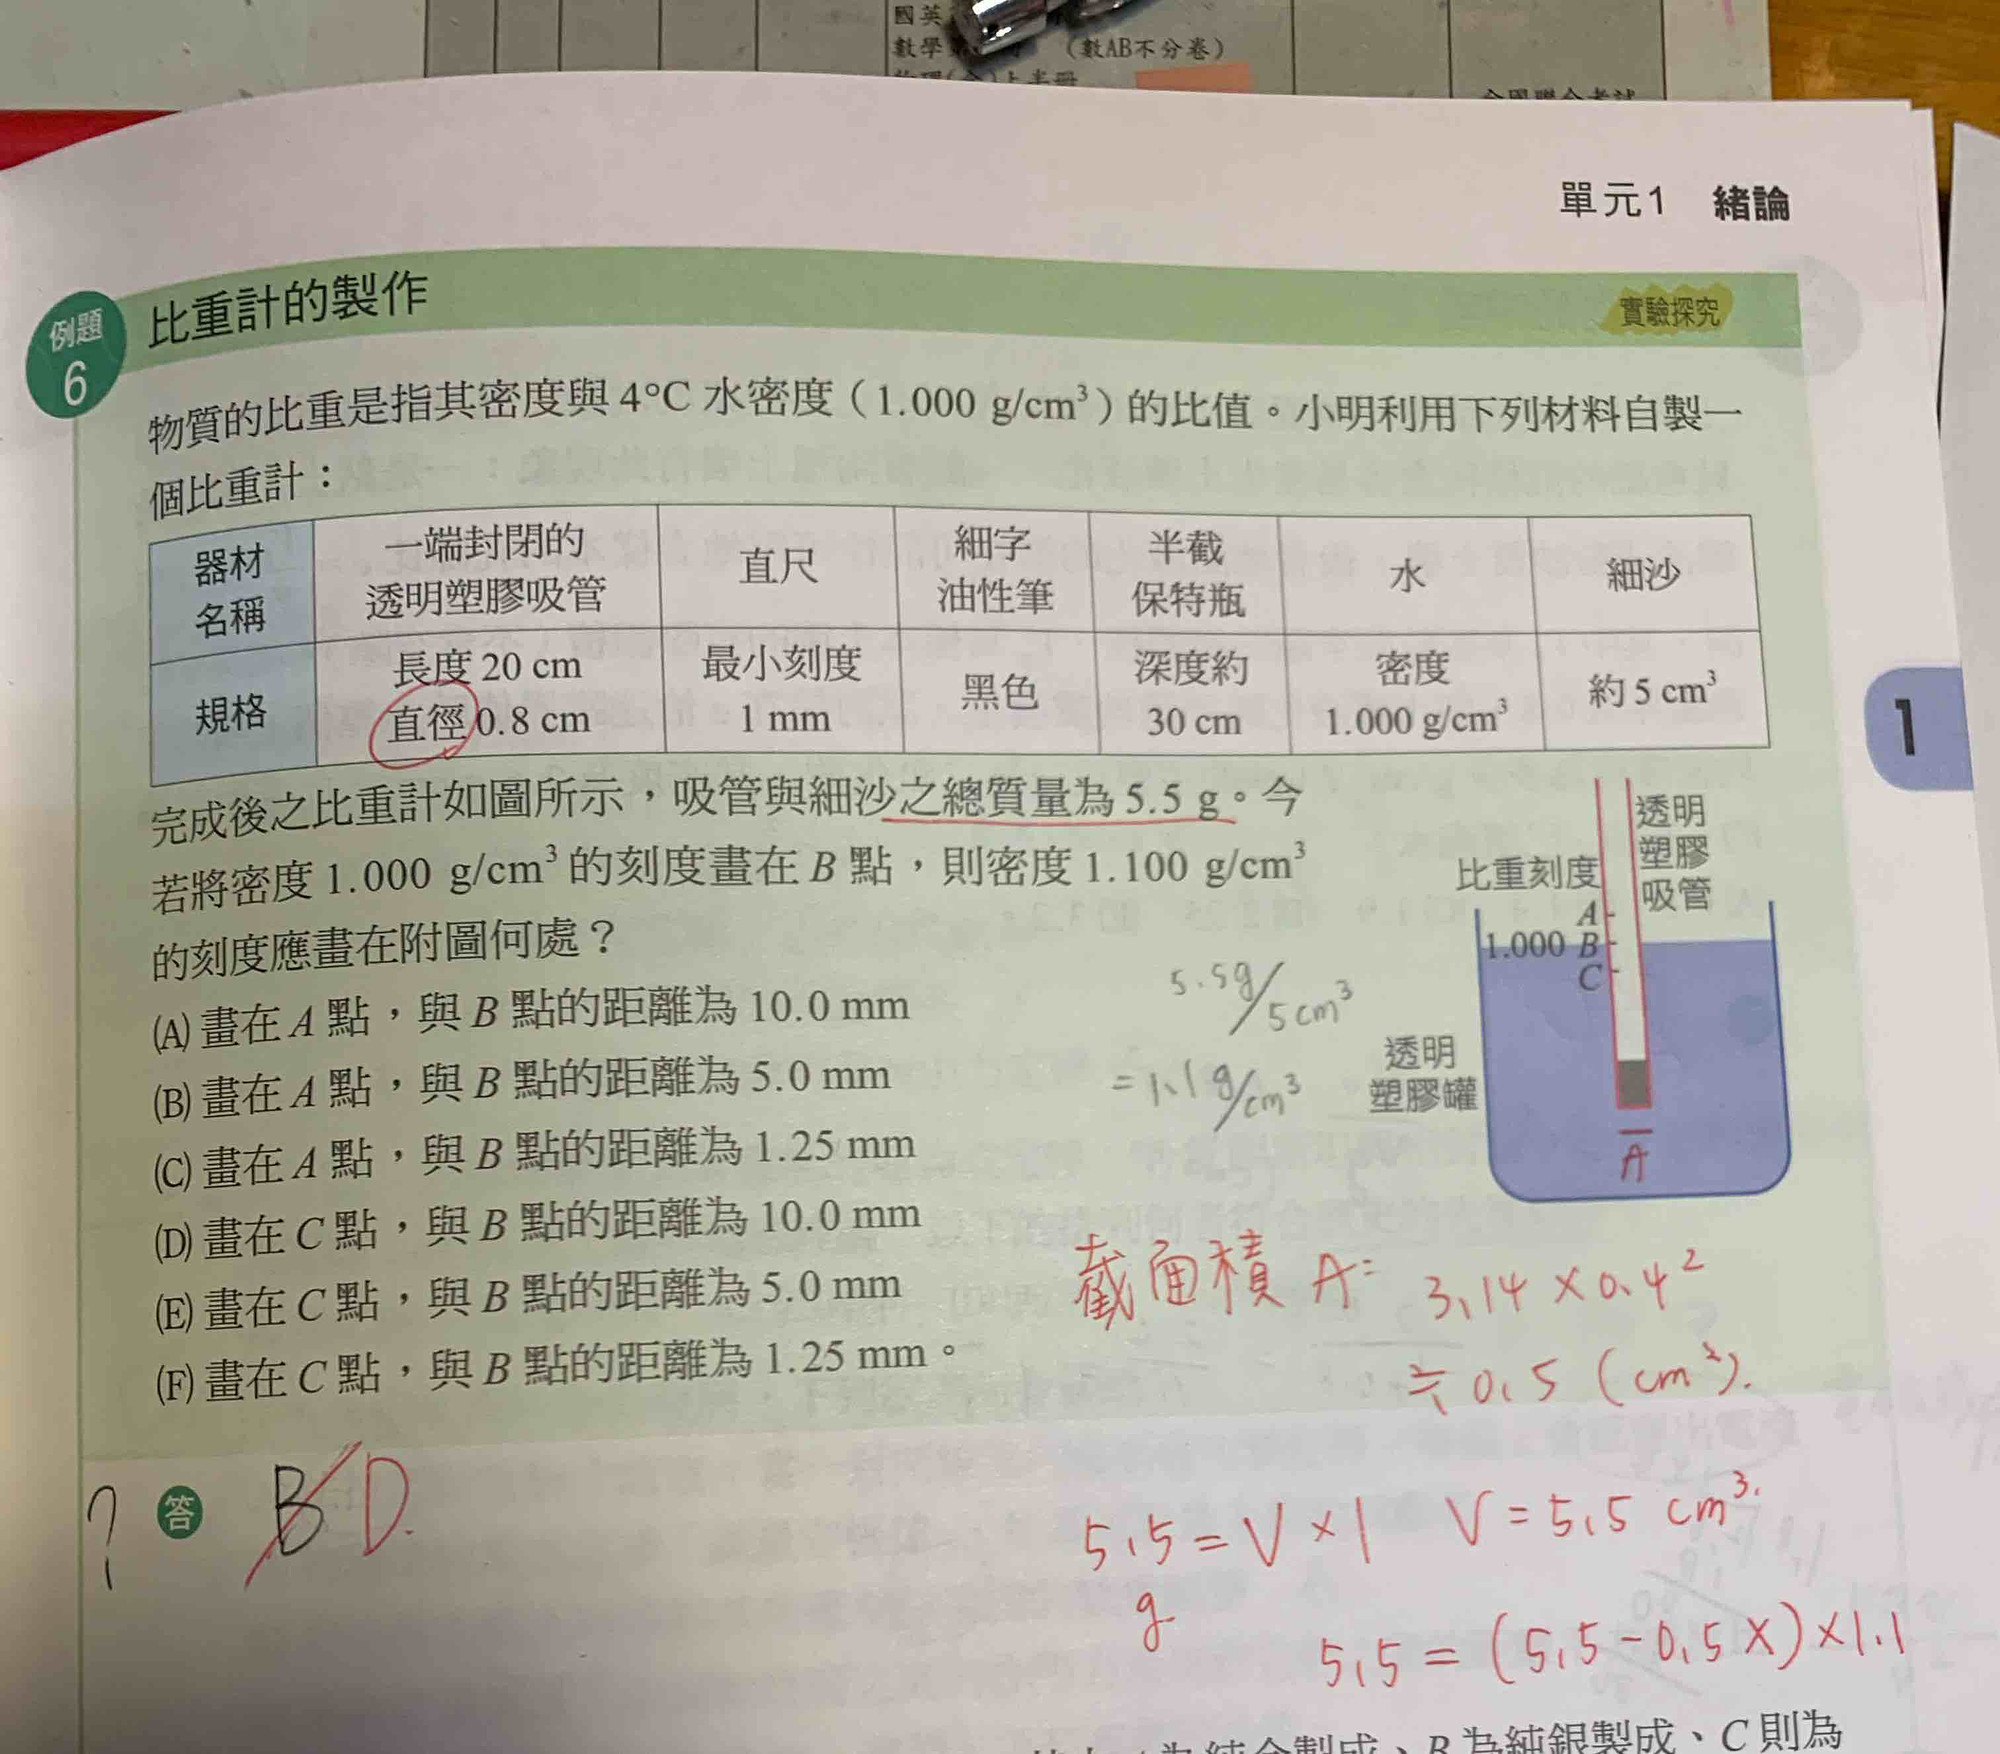 國英
數學 （數AB不分卷）
單元1 緒論
例題
6
比重計的製作
實驗探究
物質的比重是指其密度與 4°C 水密度（1.000 g/cm³）的比值。小明利用下列材料自製一
個比重計：
器材名稱 一端封閉的透明塑膠吸管 直尺 細字油性筆 半截保特瓶 水 細沙
規格 長度 20 cm 直徑 0.8 cm 最小刻度 1 mm 黑色 深度約 30 cm 密度 1.000 g/cm³ 約 5 cm³
完成後之比重計如圖所示，吸管與細沙之總質量為 5.5 g。今
若將密度 1.000 g/cm³ 的刻度畫在 B 點，則密度 1.100 g/cm³
的刻度應畫在附圖何處？
(A) 畫在 A 點，與 B 點的距離為 10.0 mm
(B) 畫在 A 點，與 B 點的距離為 5.0 mm
(C) 畫在 A 點，與 B 點的距離為 1.25 mm
(D) 畫在 C 點，與 B 點的距離為 10.0 mm
(E) 畫在 C 點，與 B 點的距離為 5.0 mm
(F) 畫在 C 點，與 B 點的距離為 1.25 mm。
透明
塑膠
吸管
比重刻度
A
1.000 B
C
透明
塑膠罐
A
1
5.5g/5cm³
=1.1g/cm³
截面積 A= 3.14×0.4²
≒0.5 (cm²).
? 答 B D.
5.5=V×1 V=5.5 cm³.
g
5.5=(5.5-0.5X)×1.1
為純金製成、B 為純銀製成、C 則為